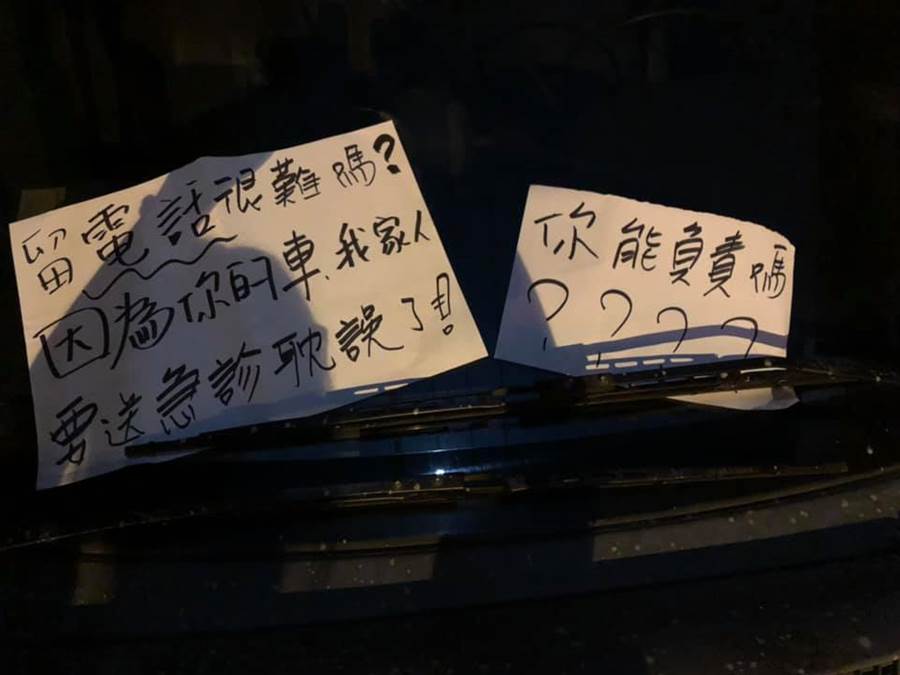 留電話很難嗎?
因為你的車、我家人
要送急診耽誤了!
你能負責嗎
????